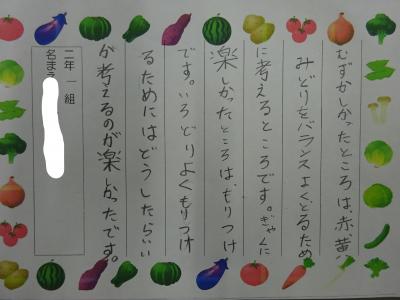 むずかしかったところは、赤、黄、
みどりをバランスよくとるため
に考えるところです。ぎゃくに
楽しかったところは、もりつけ
です。いろどりよくもりつけ
るためにはどうしたらいい
が考えるのが楽しかったです。
二年一組
名まえ